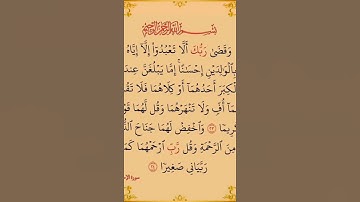 بِسْمِ ٱللَّهِ ٱلرَّحْمَٰنِ ٱلرَّحِيمِ
وَقَضَىٰ رَبُّكَ أَلَّا تَعْبُدُوٓا۟ إِلَّآ إِيَّاهُ
بِٱلْوَٰلِدَيْنِ إِحْسَٰنًا ۚ إِمَّا يَبْلُغَنَّ عِندَ
ٱلْكِبَرَ أَحَدُهُمَآ أَوْ كِلَاهُمَا فَلَا تَقُ
مَآ أُفٍّ وَلَا تَنْهَرْهُمَا وَقُل لَّهُمَا قَوْ
رِيمًا ٢٣ وَٱخْفِضْ لَهُمَا جَنَاحَ ٱلذُّ
مِنَ ٱلرَّحْمَةِ وَقُل رَّبِّ ٱرْحَمْهُمَا كَمَ
رَبَّيَانِى صَغِيرًا ٢٤
سورة الإ